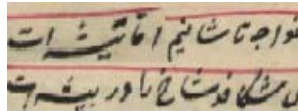 خواجه تاشانیم اما تیشه‌ات
می شکافد شاخ را در بیشه‌ات